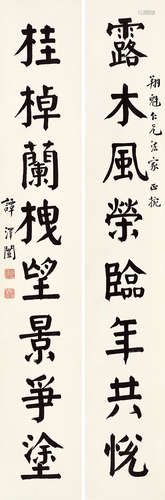 露木風榮臨年共悅
翔龍仁兄法家正捥
桂棹蘭栧望景爭塗
譚澤闓